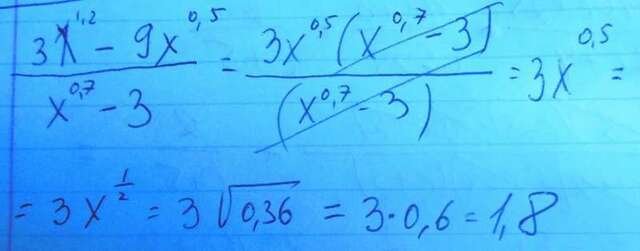 (3x^1,2 - 9x^0,5)/(x^0,7 - 3) = (3x^0,5(x^0,7 - 3))/((x^0,7 - 3)) = 3x^0,5 =
= 3x^(1/2) = 3√0,36 = 3·0,6 = 1,8